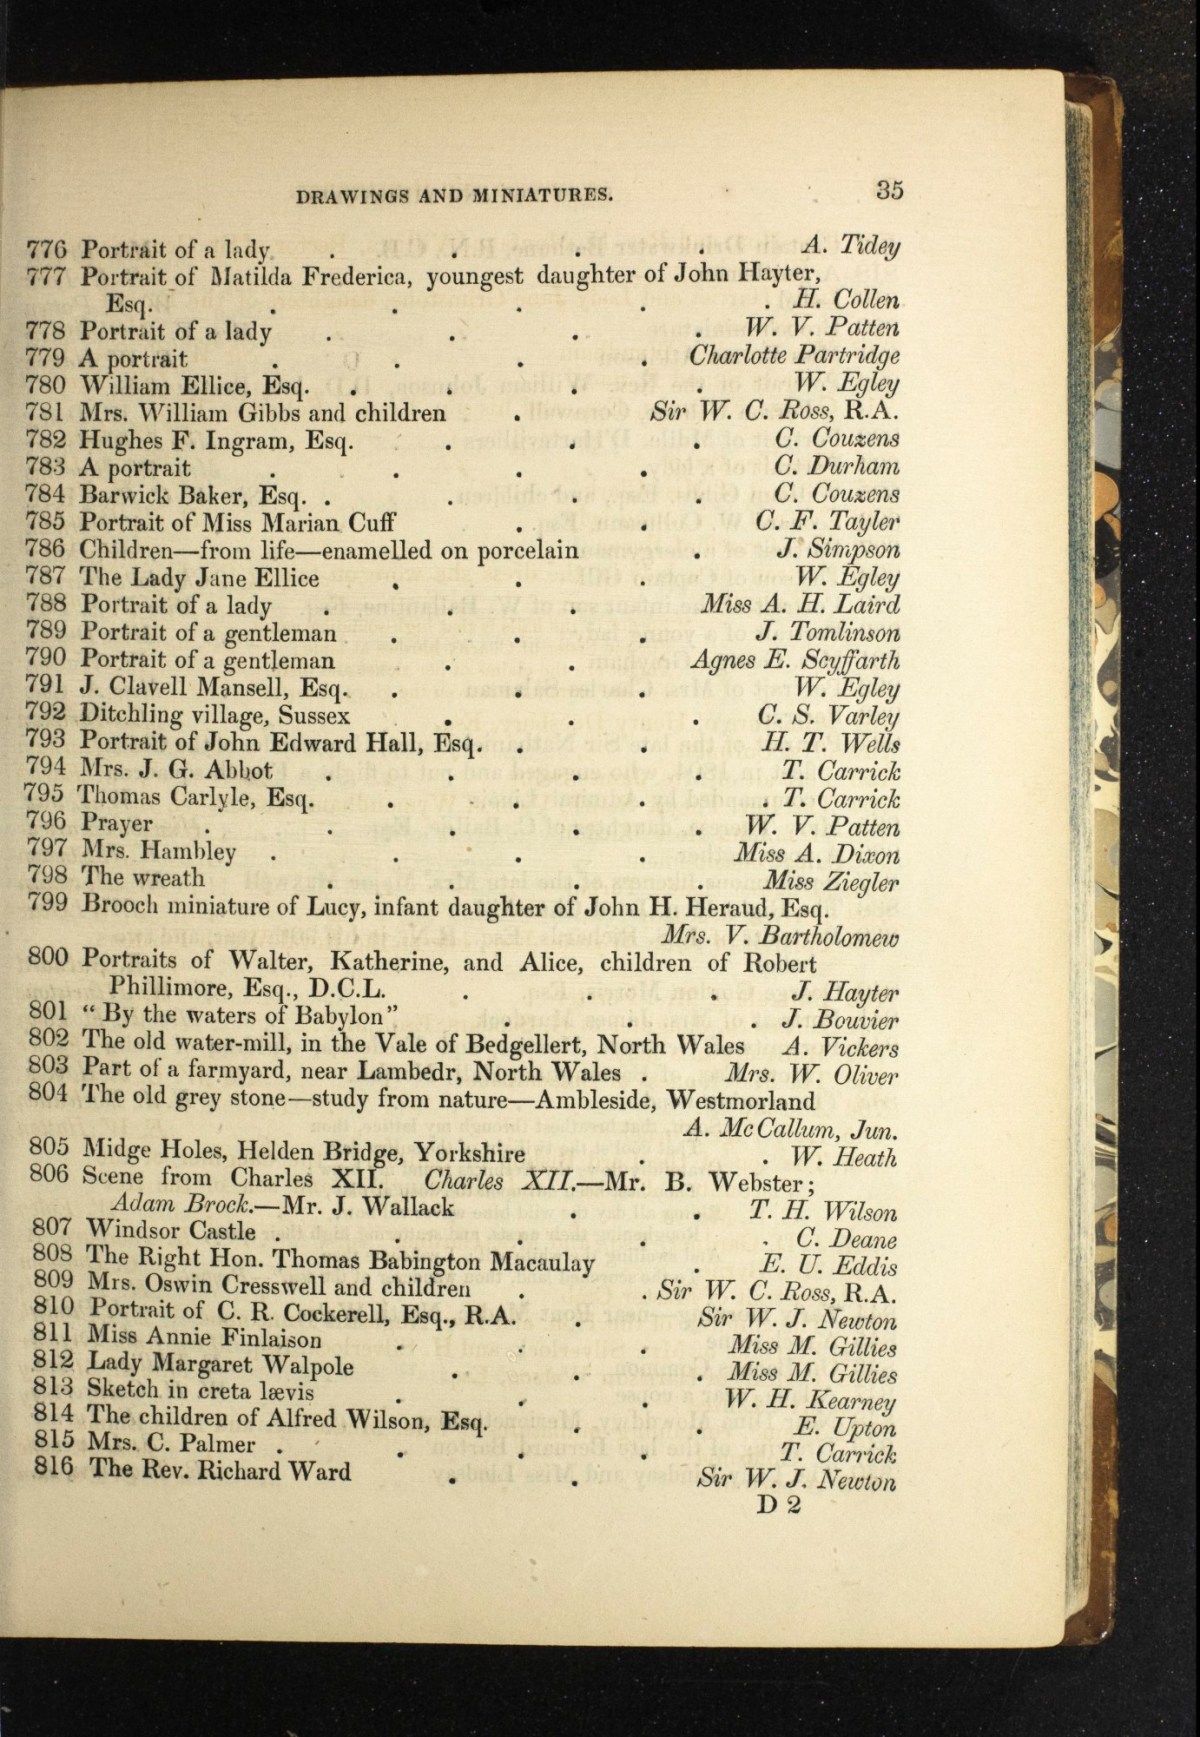 DRAWINGS AND MINIATURES. 35
776 Portrait of a lady . . . . A. Tidey
777 Portrait of Matilda Frederica, youngest daughter of John Hayter,
Esq. . . . . . H. Collen
778 Portrait of a lady . . . . W. V. Patten
779 A portrait . . . . Charlotte Partridge
780 William Ellice, Esq. . . . . W. Egley
781 Mrs. William Gibbs and children . Sir W. C. Ross, R.A.
782 Hughes F. Ingram, Esq. . . . C. Couzens
783 A portrait . . . . C. Durham
784 Barwick Baker, Esq. . . . . C. Couzens
785 Portrait of Miss Marian Cuff . . C. F. Tayler
786 Children—from life—enamelled on porcelain . J. Simpson
787 The Lady Jane Ellice . . . W. Egley
788 Portrait of a lady . . . Miss A. H. Laird
789 Portrait of a gentleman . . . J. Tomlinson
790 Portrait of a gentleman . . Agnes E. Scyffarth
791 J. Clavell Mansell, Esq. . . . W. Egley
792 Ditchling village, Sussex . . . C. S. Varley
793 Portrait of John Edward Hall, Esq. . . H. T. Wells
794 Mrs. J. G. Abbot . . . . T. Carrick
795 Thomas Carlyle, Esq. . . . . T. Carrick
796 Prayer . . . . . W. V. Patten
797 Mrs. Hambley . . . . Miss A. Dixon
798 The wreath . . . . Miss Ziegler
799 Brooch miniature of Lucy, infant daughter of John H. Heraud, Esq.
Mrs. V. Bartholomew
800 Portraits of Walter, Katherine, and Alice, children of Robert
Phillimore, Esq., D.C.L. . . . J. Hayter
801 “By the waters of Babylon” . . . J. Bouvier
802 The old water-mill, in the Vale of Bedgellert, North Wales A. Vickers
803 Part of a farmyard, near Lambedr, North Wales . Mrs. W. Oliver
804 The old grey stone—study from nature—Ambleside, Westmorland
A. McCallum, Jun.
805 Midge Holes, Helden Bridge, Yorkshire . . W. Heath
806 Scene from Charles XII. Charles XII.—Mr. B. Webster;
Adam Brock.—Mr. J. Wallack . . T. H. Wilson
807 Windsor Castle . . . . . C. Deane
808 The Right Hon. Thomas Babington Macaulay . E. U. Eddis
809 Mrs. Oswin Cresswell and children . . Sir W. C. Ross, R.A.
810 Portrait of C. R. Cockerell, Esq., R.A. . Sir W. J. Newton
811 Miss Annie Finlaison . . . Miss M. Gillies
812 Lady Margaret Walpole . . . Miss M. Gillies
813 Sketch in creta lævis . . . W. H. Kearney
814 The children of Alfred Wilson, Esq. . . E. Upton
815 Mrs. C. Palmer . . . . T. Carrick
816 The Rev. Richard Ward . . Sir W. J. Newton
D 2